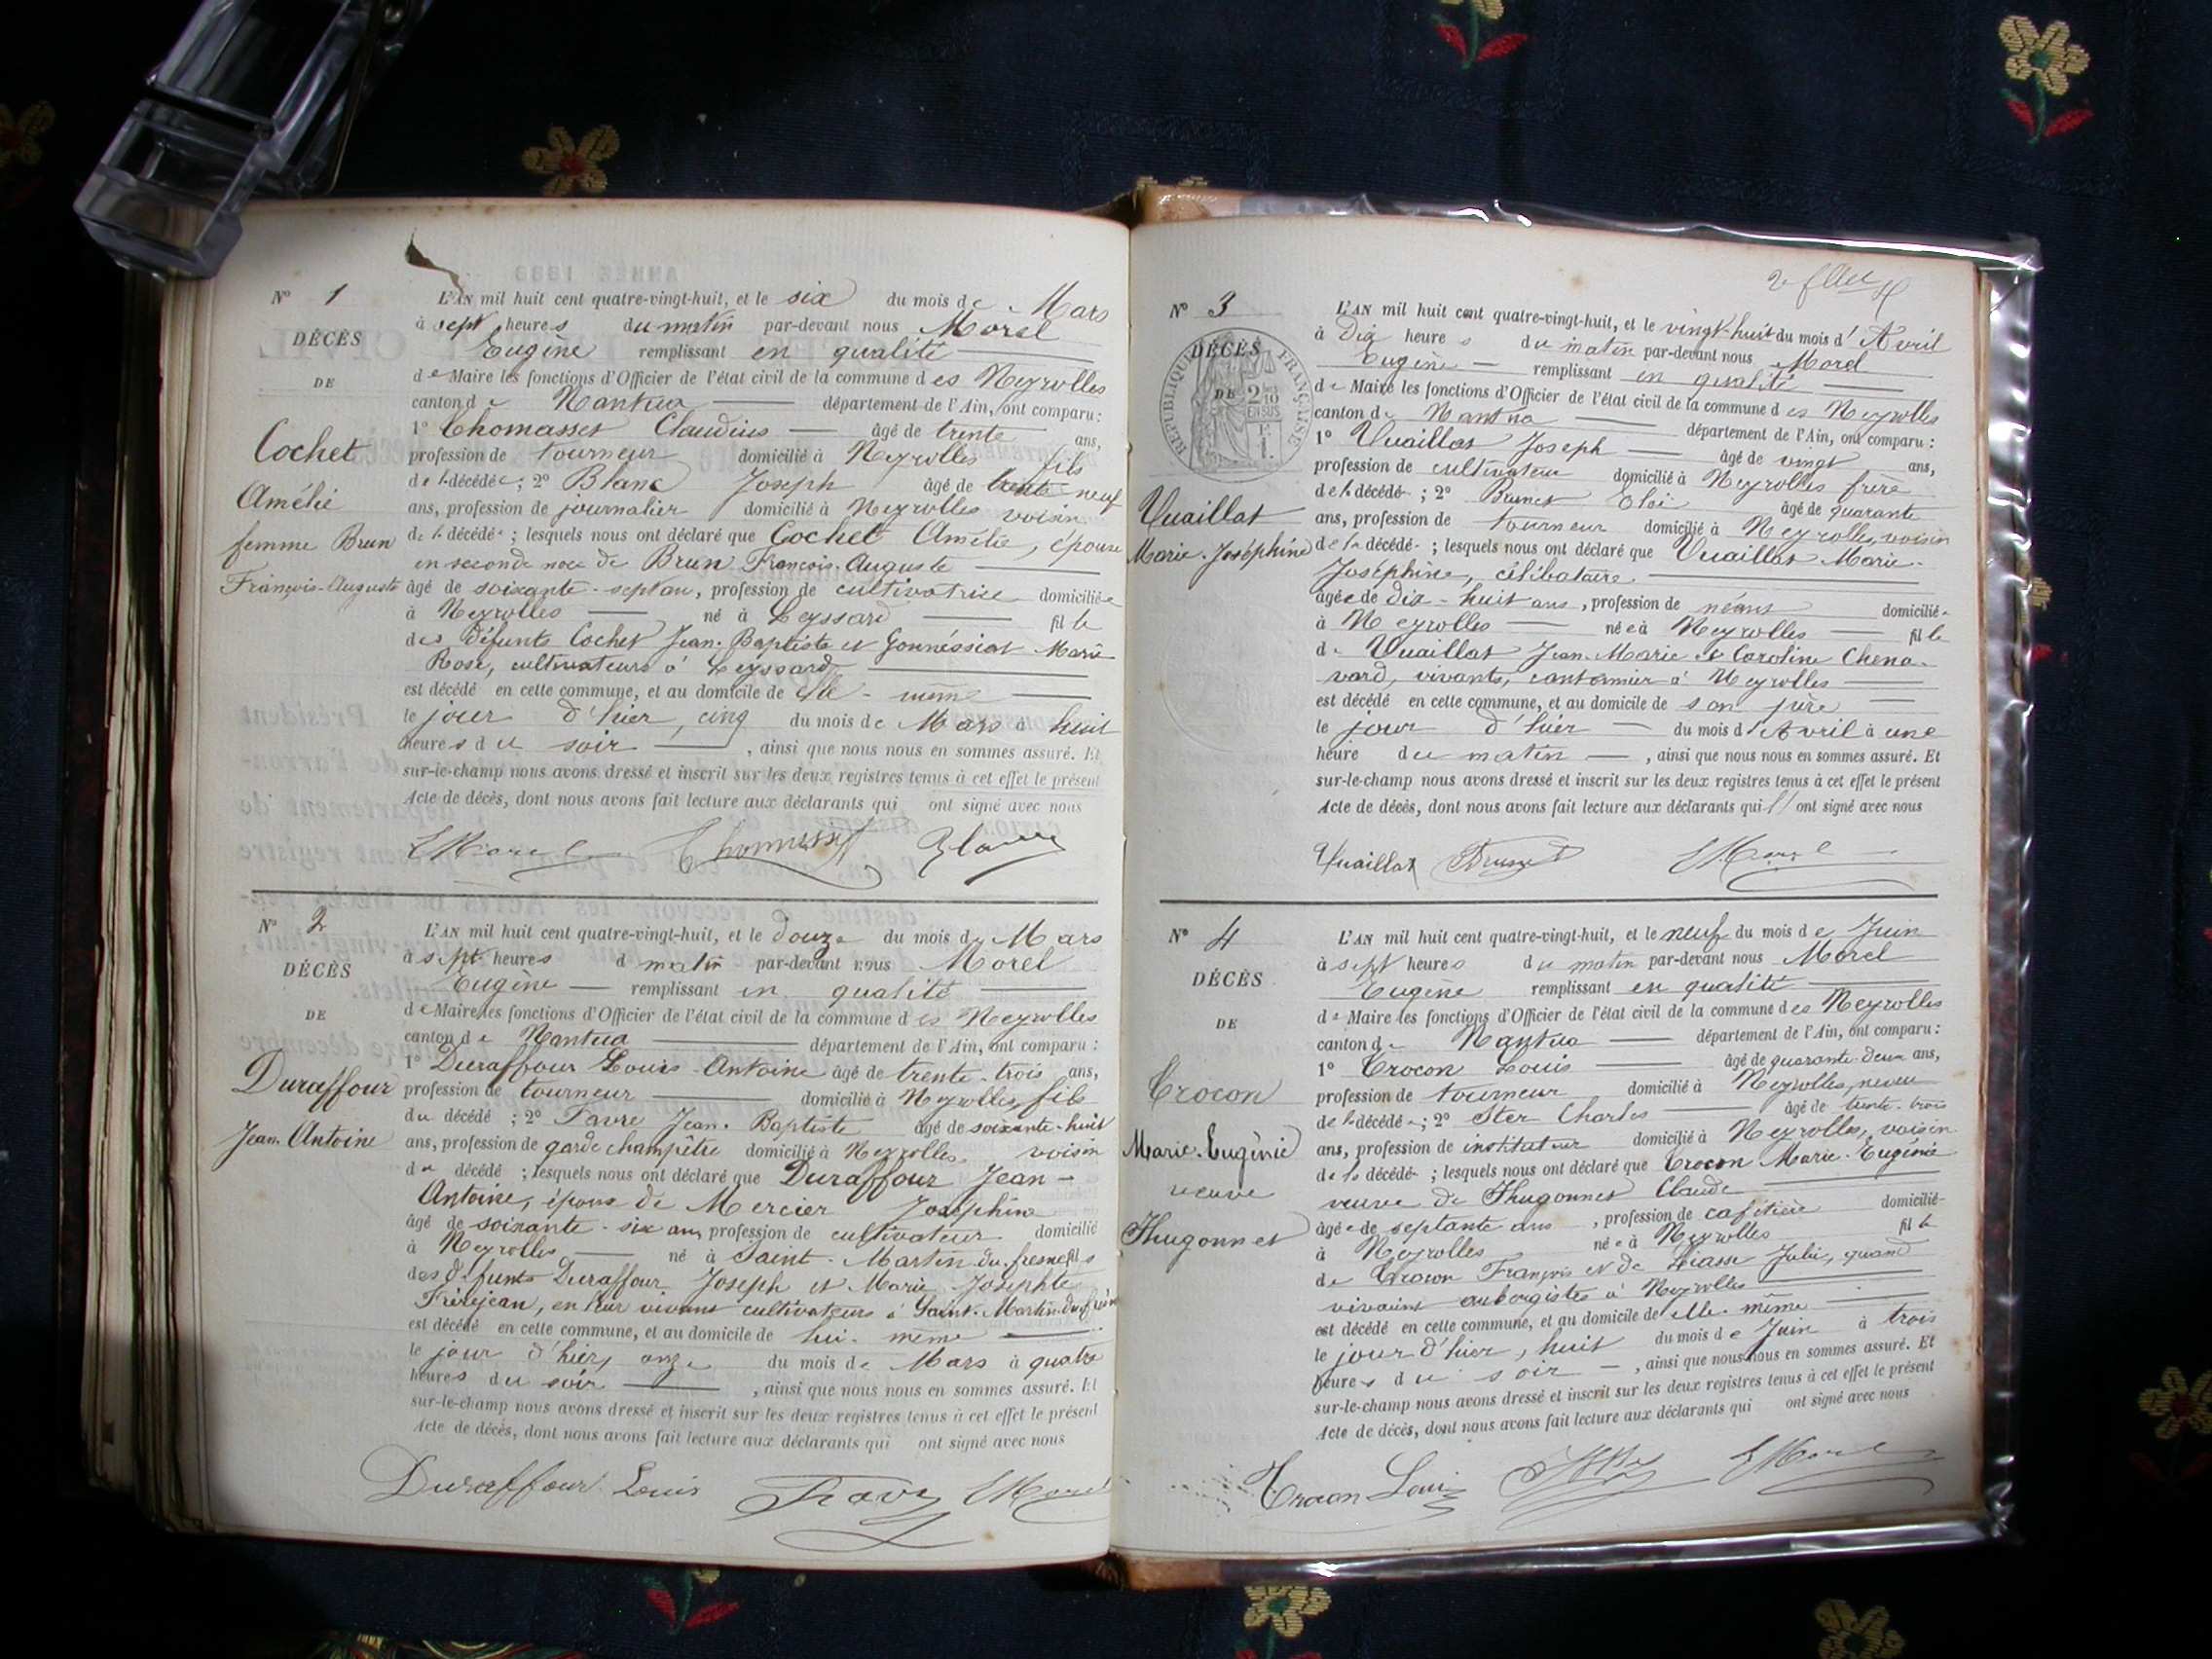 N° 1
DÉCÈS
DE
Cochet
Amélie
femme Brun
François-Auguste
L'AN mil huit cent quatre-vingt-huit, et le six du mois de Mars
à sept heures du matin par-devant nous Morel
Eugène remplissant en qualité
de Maire les fonctions d'Officier de l'état civil de la commune des Neyrolles
canton de Nantua département de l'Ain, ont comparu :
1° Thomasset Claudius âgé de trente ans,
profession de tourneur domicilié à Neyrolles fils
de la décédée ; 2° Blanc Joseph âgé de trente-neuf
ans, profession de journalier domicilié à Neyrolles voisin
de la décédée ; lesquels nous ont déclaré que Cochet Amélie, épouse
en seconde noce de Brun François-Auguste
âgé de soixante-sept ans, profession de cultivatrice domiciliée
à Neyrolles né à Leyssard fille
des défunts Cochet Jean-Baptiste et Gonnéssiat Marie
Rose, cultivateurs à Leyssard
est décédé en cette commune, et au domicile de elle-même
le jour d'hier, cinq du mois de Mars à huit
heures du soir , ainsi que nous nous en sommes assuré. Et
sur-le-champ nous avons dressé et inscrit sur les deux registres tenus à cet effet le présent
Acte de décès, dont nous avons fait lecture aux déclarants qui ont signé avec nous
EMorel Thomasset Blanc
N° 2
DÉCÈS
DE
Duraffour
Jean-Antoine
L'AN mil huit cent quatre-vingt-huit, et le douze du mois de Mars
à sept heures d matin par-devant nous Morel
Eugène remplissant en qualité
de Maire les fonctions d'Officier de l'état civil de la commune des Neyrolles
canton de Nantua département de l'Ain, ont comparu :
1° Duraffour Louis-Antoine âgé de trente-trois ans,
profession de tourneur domicilié à Neyrolles, fils
du décédé ; 2° Favre Jean-Baptiste âgé de soixante-huit
ans, profession de garde champêtre domicilié à Neyrolles voisin
du décédé ; lesquels nous ont déclaré que Duraffour Jean-
Antoine, époux de Mercier Joséphine
âgé de soixante-six ans, profession de cultivateur domicilié
à Neyrolles né à Saint-Martin-du-fresne fils
des défunts Duraffour Joseph et Marie Josephte
Frèrejean, en leur vivant cultivateurs à Saint-Martin-du-frêne
est décédé en cette commune, et au domicile de lui-même
le jour d'hier, onze du mois de Mars à quatre
heures du soir , ainsi que nous nous en sommes assuré. Et
sur-le-champ nous avons dressé et inscrit sur les deux registres tenus à cet effet le présent
Acte de décès, dont nous avons fait lecture aux déclarants qui ont signé avec nous
Duraffour Louis Favre EMorel
N° 3
DÉCÈS
DE
RÉPUBLIQUE FRANÇAISE
Vuaillat
Marie-Joséphine
L'AN mil huit cent quatre-vingt-huit, et le vingt-huit du mois d'Avril
à Dix heures du matin par-devant nous Morel
Eugène remplissant en qualité
de Maire les fonctions d'Officier de l'état civil de la commune des Neyrolles
canton de Nantua département de l'Ain, ont comparu :
1° Vuaillat Joseph âgé de vingt ans,
profession de cultivateur domicilié à Neyrolles frère
de la décédé ; 2° Brunet Eloi âgé de quarante
ans, profession de tourneur domicilié à Neyrolles, voisin
de la décédé ; lesquels nous ont déclaré que Vuaillat Marie-
Joséphine, célibataire
âgée de dix-huit ans, profession de néant domiciliée
à Neyrolles née à Neyrolles fille
de Vuaillat Jean-Marie et Caroline Chena-
vard, vivants, cantonnier à Neyrolles
est décédé en cette commune, et au domicile de son père
le jour d'hier du mois d'Avril à une
heure du matin , ainsi que nous nous en sommes assuré. Et
sur-le-champ nous avons dressé et inscrit sur les deux registres tenus à cet effet le présent
Acte de décès, dont nous avons fait lecture aux déclarants qui ont signé avec nous
Vuaillat Brunet EMorel
N° 4
DÉCÈS
DE
Crocon
Marie-Eugénie
veuve
Thugonnet
L'AN mil huit cent quatre-vingt-huit, et le neuf du mois de Juin
à sept heures du matin par-devant nous Morel
Eugène remplissant en qualité
de Maire les fonctions d'Officier de l'état civil de la commune des Neyrolles
canton de Nantua département de l'Ain, ont comparu :
1° Crocon Louis âgé de quarante-deux ans,
profession de tourneur domicilié à Neyrolles, neveu
de la décédée ; 2° Ster Charles âgé de trente-trois
ans, profession de instituteur domicilié à Neyrolles, voisin
de la décédé ; lesquels nous ont déclaré que Crocon Marie-Eugénie
veuve de Thugonnet Claude
âgée de septante ans , profession de cafetière domicilié
à Neyrolles née à Neyrolles fille
de Crocon François et de Julie, quand
vivaient aubergistes à Neyrolles
est décédé en cette commune, et au domicile de elle-même
le jour d'hier, huit du mois de Juin à trois
heures du soir , ainsi que nous nous en sommes assuré. Et
sur-le-champ nous avons dressé et inscrit sur les deux registres tenus à cet effet le présent
Acte de décès, dont nous avons fait lecture aux déclarants qui ont signé avec nous
Crocon Louis EMorel